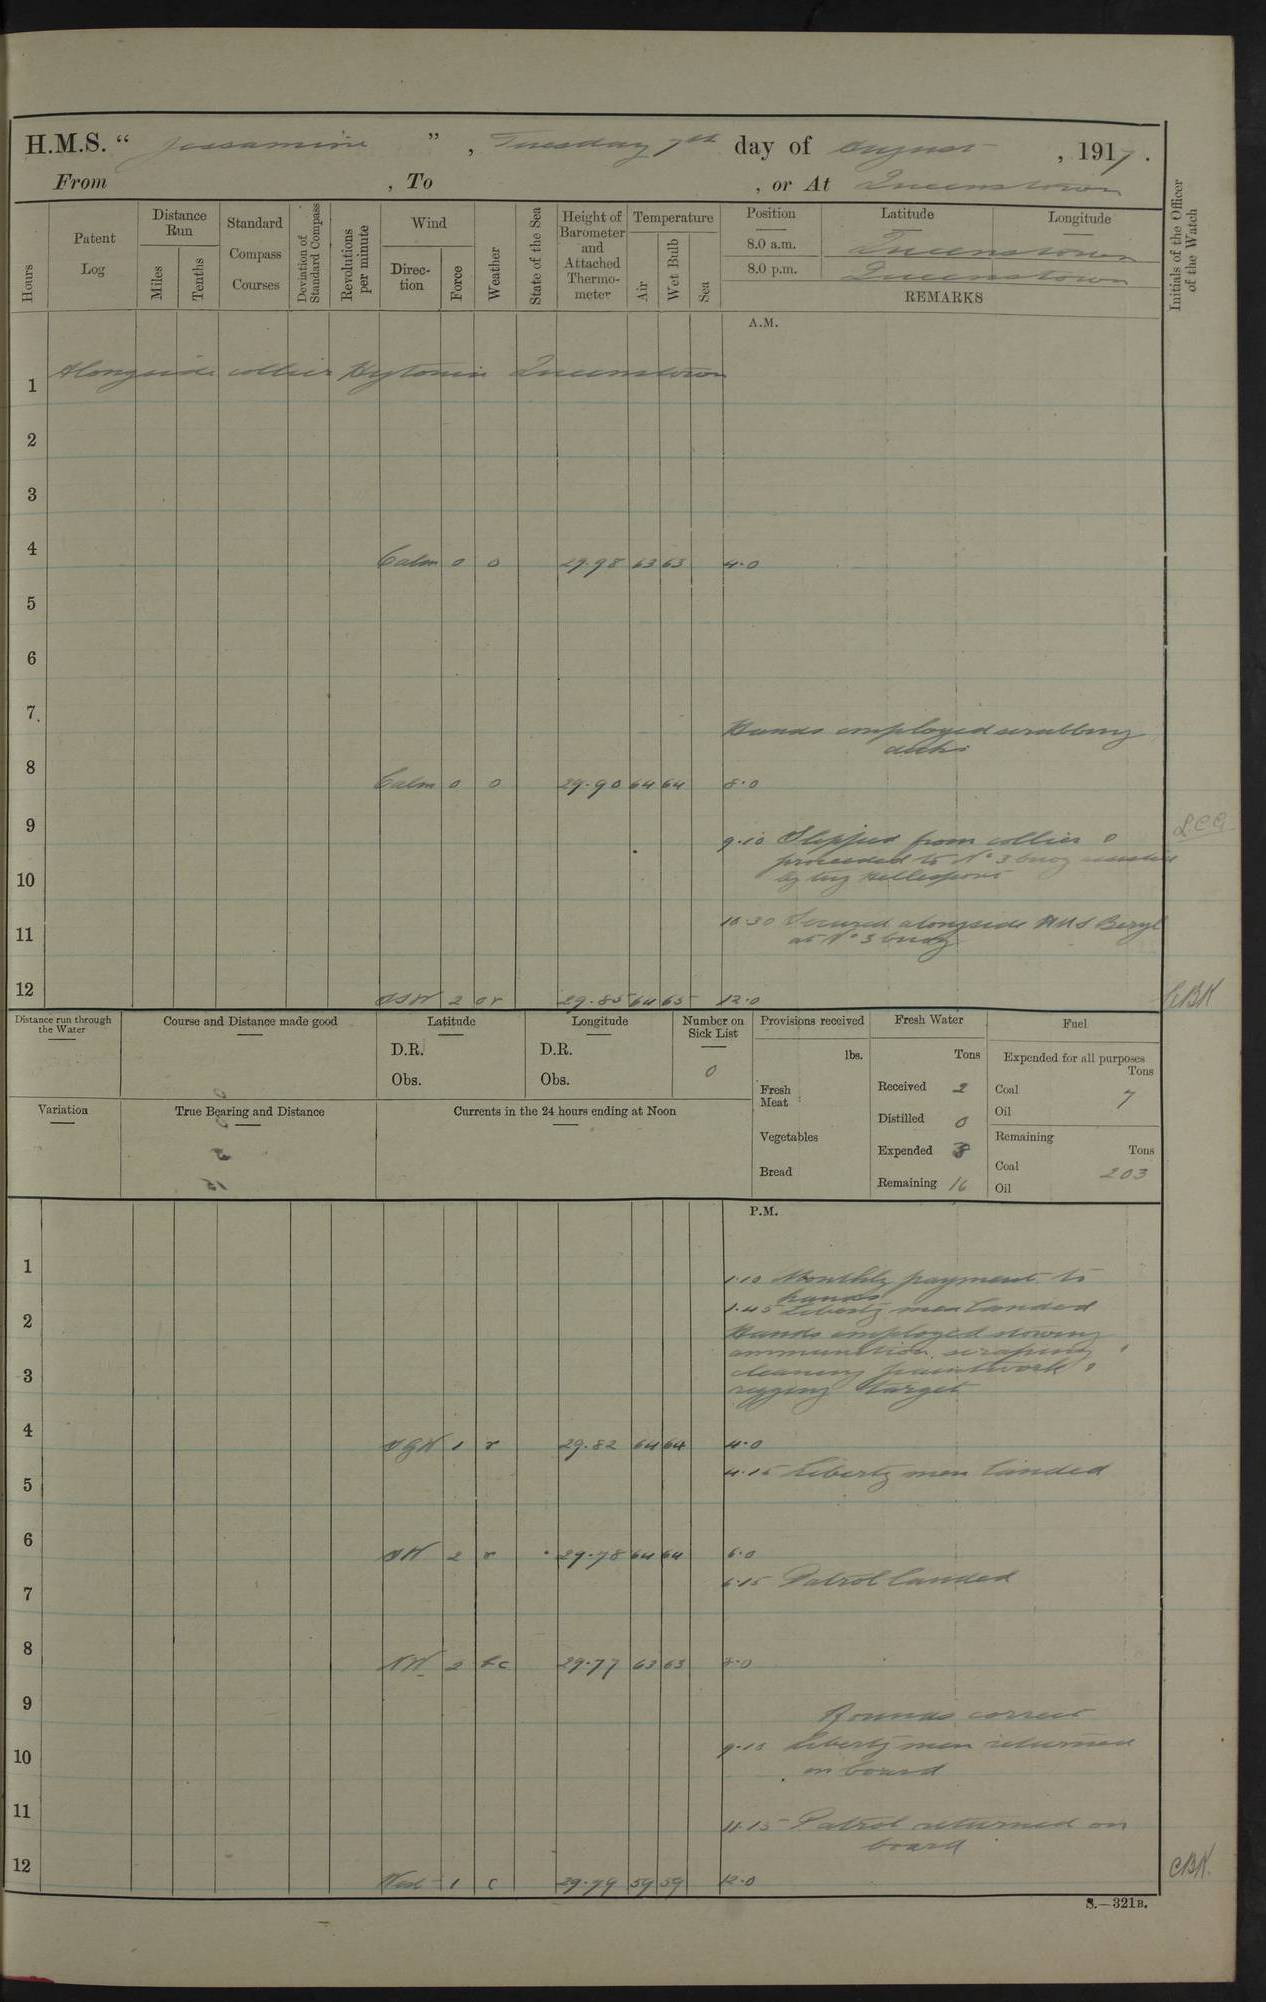 H.M.S. “ Jessamine ” , Tuesday 7th day of August , 1917 .
From , To , or At Queenstown
Hours
Patent Log
Distance Run
Miles
Tenths
Standard Compass Courses
Deviation of Standard Compass
Revolutions per minute
Wind
Direction
Force
Weather
State of the Sea
Height of Barometer and Attached Thermometer
Temperature
Air
Wet Bulb
Sea
Position Latitude Longitude
8.0 a.m. Queenstown
8.0 p.m. Queenstown
REMARKS
Initials of the Officer of the Watch
A.M.
Alongside collier Queenstown
1
2
3
4 Calm 0 0 29.98 63 63 4.0
5
6
7
Hands employed scrubbing
decks
8 Calm 0 0 29.90 64 64 8.0
9
9.10 Slipped from collier &
proceeded to No 3 buoy assisted
by tug Hellespont
10
10.30 Secured alongside HMS Beryl
at No 3 buoy
11
12 SSW 2 or 29.85 64 63 12.0
Distance run through the Water
Course and Distance made good
Latitude
D.R.
Obs.
Longitude
D.R.
Obs.
Number on Sick List
0
Provisions received
lbs.
Fresh Meat
Vegetables
Bread
Fresh Water
Tons
Received 2
Distilled 0
Expended 8
Remaining 16
Fuel
Expended for all purposes
Tons
Coal 7
Oil
Remaining
Tons
Coal 203
Oil
Variation
True Bearing and Distance
Currents in the 24 hours ending at Noon
P.M.
1
1.10 Monthly payment to
hands
1.45 Liberty men landed
2
Hands employed stowing
ammunition, scraping &
cleaning paintwork &
rigging target
3
4 1 r 29.82 64 64 4.0
4.15 Liberty men landed
5
6 SW 2 r 29.78 64 64 6.0
6.15 Patrol landed
7
8 NW 2 bc 29.77 63 63 8.0
9
Rounds correct
9.15 Liberty men returned
on board
10
11
11.15 Patrol returned on
board
12 West 1 c 29.79 59 59 12.0
CBN.
S.—321B.